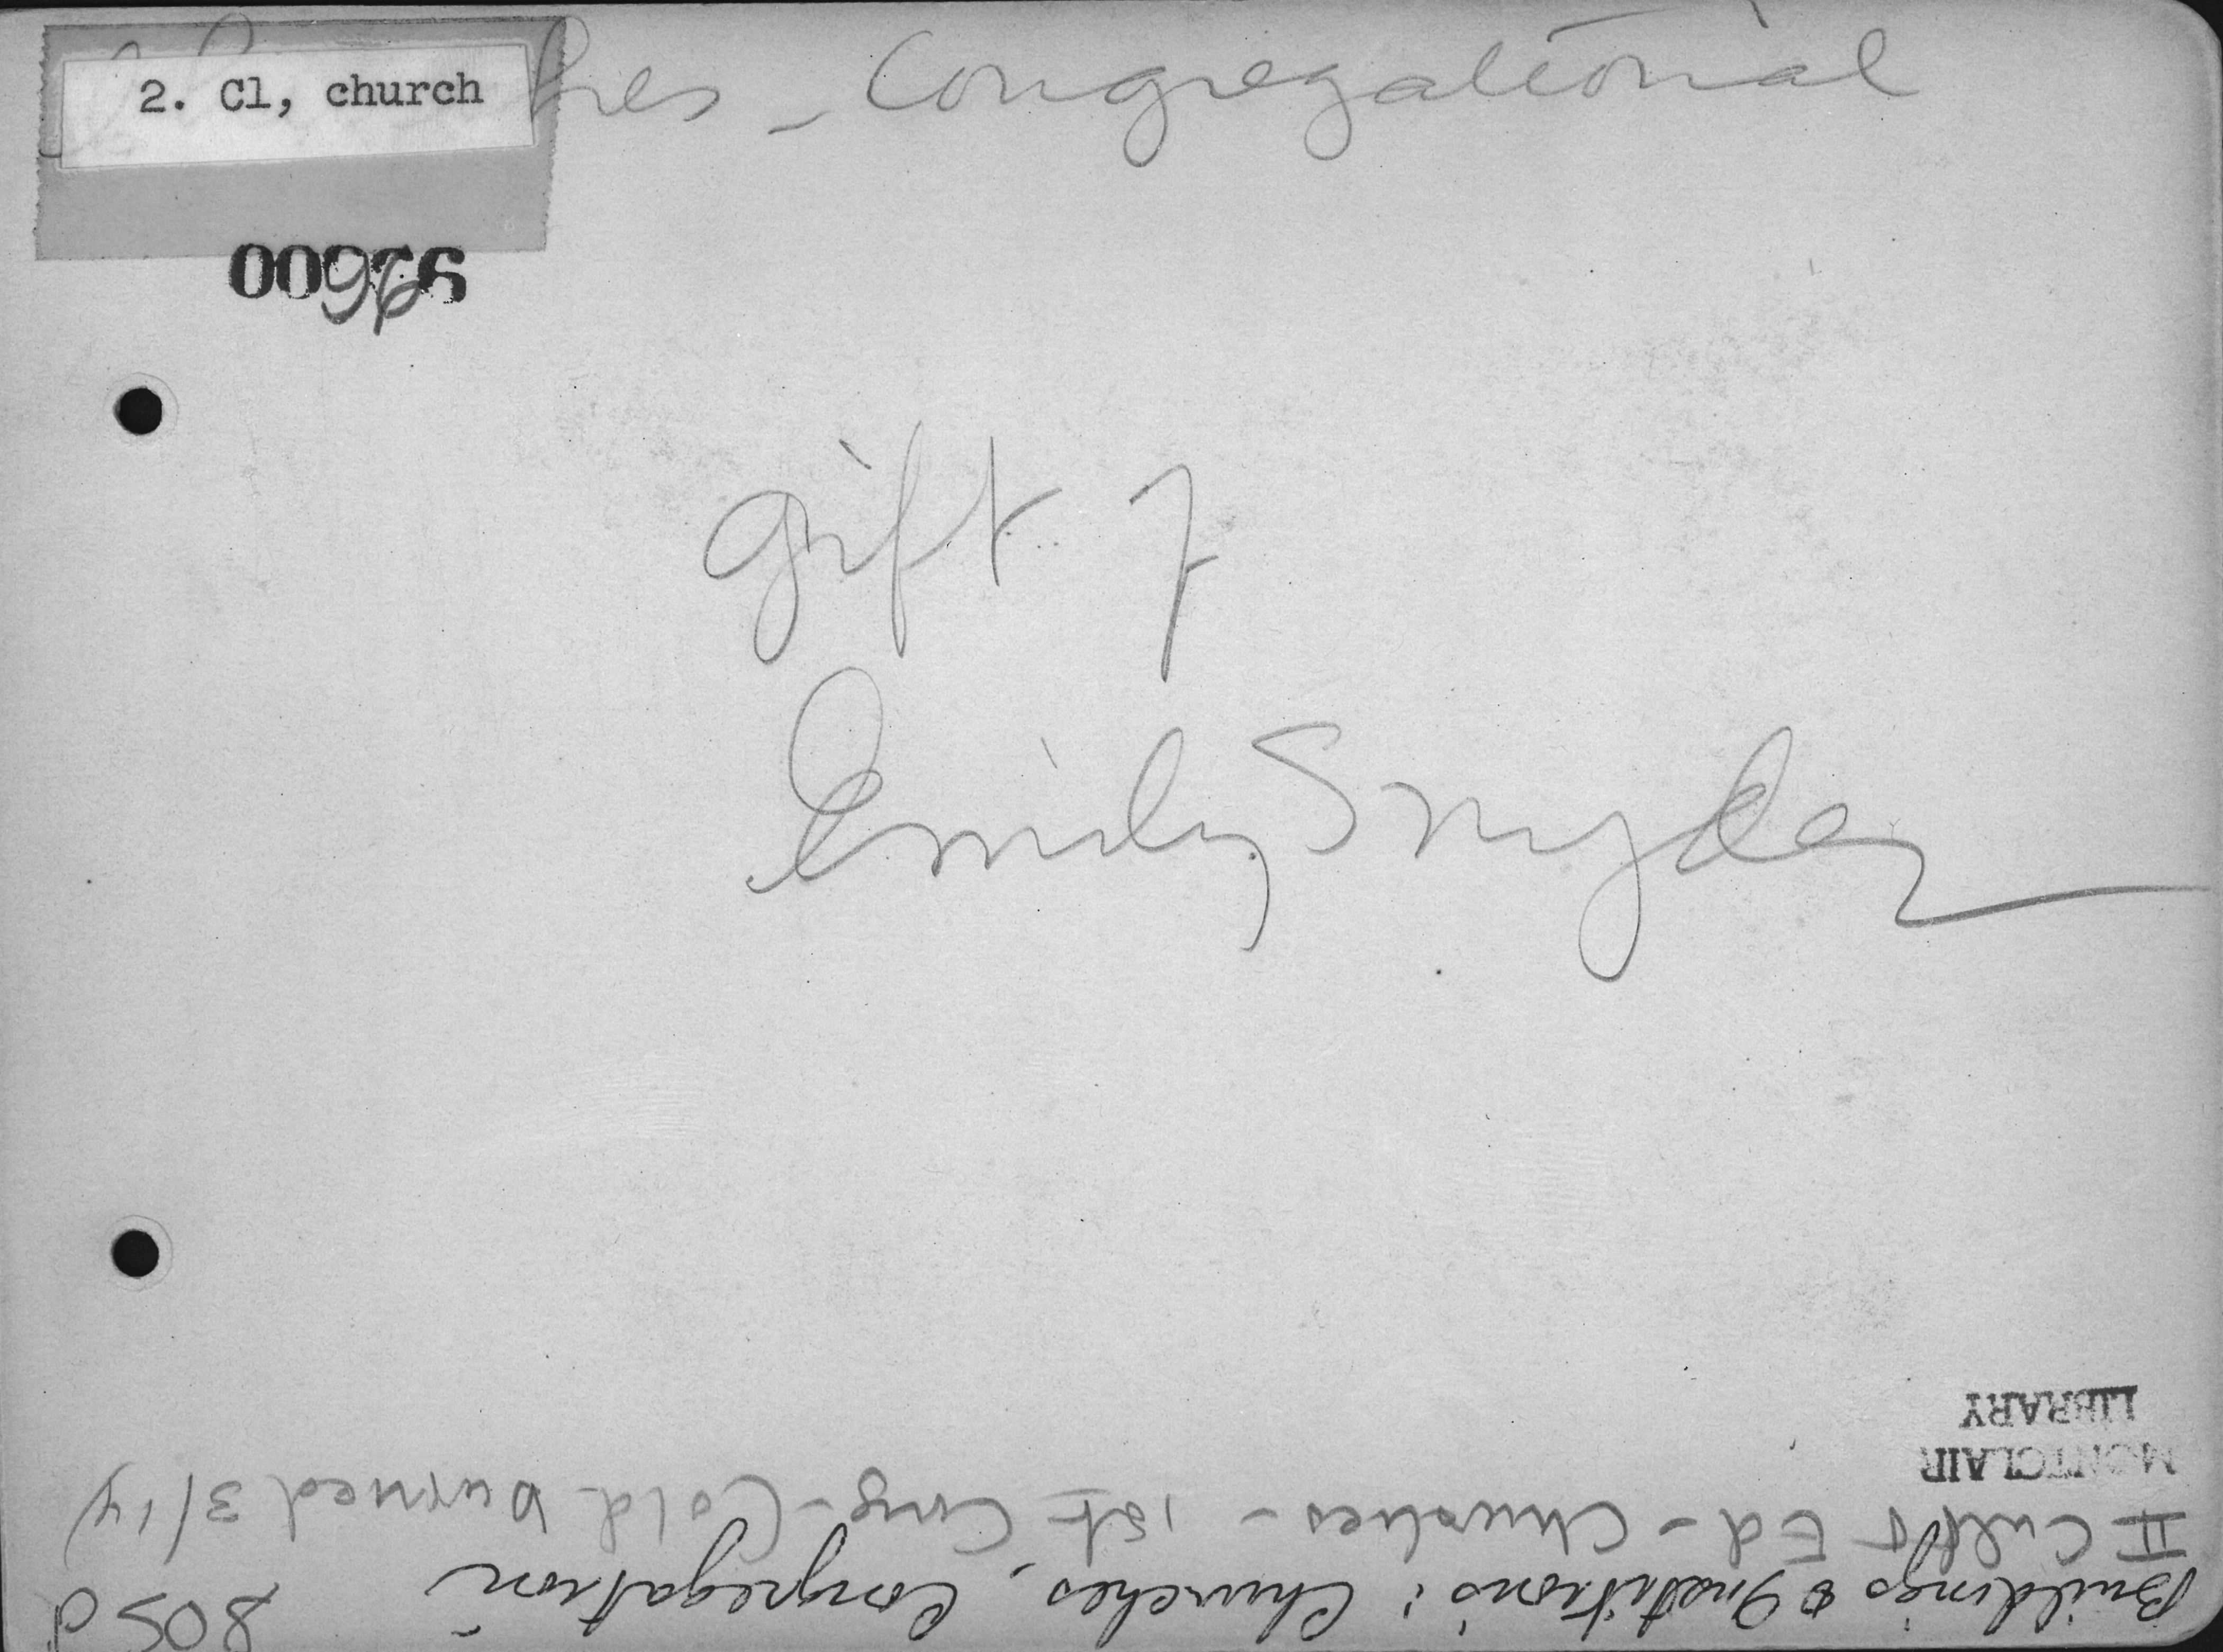 2. Cl, church
hes - Congregational
gift of
Emily Snyder
805d
Buildings & Institutions: Churches, Congregation
II Cult & Ed - Churches - 1st Cong - (old burned 3/14)
MONTCLAIR
LIBRARY